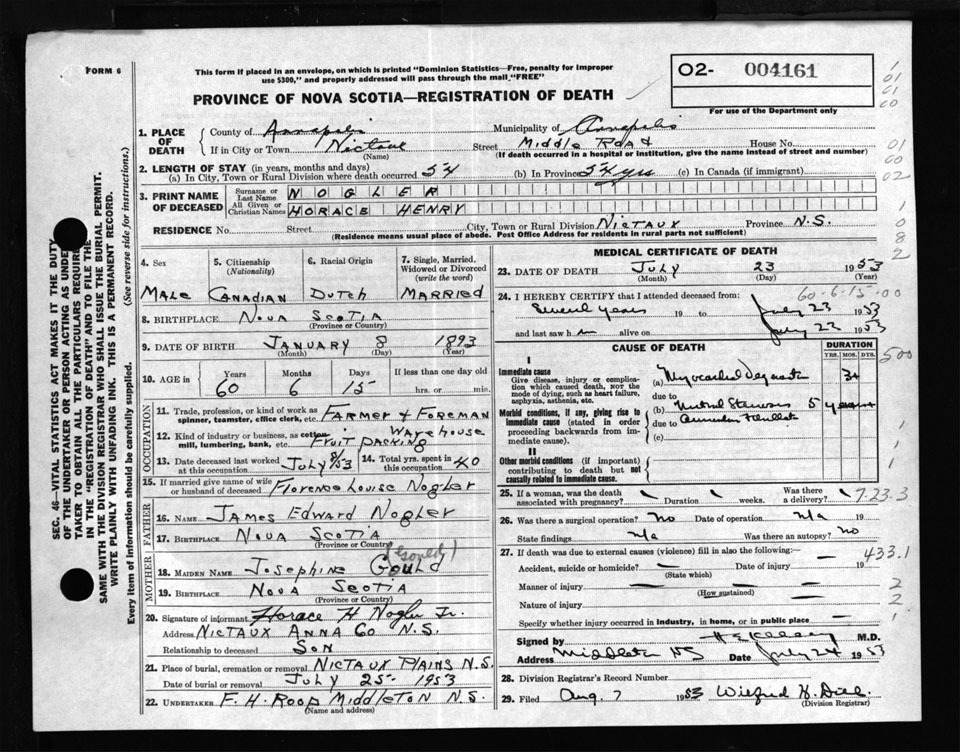 FORM 6
This form if placed in an envelope, on which is printed "Dominion Statistics—Free, penalty for improper
use $300," and properly addressed will pass through the mail "FREE"
O2- 004161
PROVINCE OF NOVA SCOTIA—REGISTRATION OF DEATH
For use of the Department only
1. PLACE OF DEATH
County of Annapolis Municipality of Annapolis
If in City or Town Nictaux Street Middle Road House No.
(Name) (If death occurred in a hospital or institution, give the name instead of street and number)
2. LENGTH OF STAY (in years, months and days)
(a) In City, Town or Rural Division where death occurred 54 (b) In Province 54 yrs (c) In Canada (if immigrant)
3. PRINT NAME OF DECEASED
Surname or Last Name NOGLER
All Given or Christian Names HORACE HENRY
RESIDENCE No. Street City, Town or Rural Division NICTAUX Province N.S.
(Residence means usual place of abode. Post Office Address for residents in rural parts not sufficient)
4. Sex 5. Citizenship (Nationality) 6. Racial Origin 7. Single, Married, Widowed or Divorced (write the word)
MALE CANADIAN DUTCH MARRIED
8. BIRTHPLACE NOVA SCOTIA
(Province or Country)
9. DATE OF BIRTH JANUARY 8 1893
(Month) (Day) (Year)
10. AGE in Years Months Days If less than one day old
60 6 15 hrs. or min.
OCCUPATION
11. Trade, profession or kind of work as spinner, teamster, office clerk, etc. FARMER & FOREMAN
12. Kind of industry or business, as cotton mill, lumbering, bank, etc. FRUIT PACKING WAREHOUSE
13. Date deceased last worked at this occupation JULY 8/53 14. Total yrs. spent in this occupation 40
15. If married give name of wife or husband of deceased Florence Louise Nogler
FATHER
16. NAME JAMES EDWARD NOGLER
17. BIRTHPLACE NOVA SCOTIA
(Province or Country)
MOTHER
18. MAIDEN NAME JOSEPHINE GOULD
19. BIRTHPLACE NOVA SCOTIA
(Province or Country)
20. Signature of informant Horace H Nogler Jr.
Address NICTAUX ANNA CO N.S.
Relationship to deceased SON
21. Place of burial, cremation or removal NICTAUX PLAINS N.S.
Date of burial or removal JULY 25- 1953
22. UNDERTAKER F. H. ROOP MIDDLETON N.S.
(Name and address)
MEDICAL CERTIFICATE OF DEATH
23. DATE OF DEATH July 23 1953
(Month) (Day) (Year)
60-6-15-00
24. I HEREBY CERTIFY that I attended deceased from:
Several years 19 to July 23 1953
and last saw h im alive on July 22 1953
CAUSE OF DEATH
DURATION
YRS. MOS. DYS.
I
Immediate cause
Give disease, injury or complication which caused death, NOT the mode of dying, such as heart failure, asphyxia, asthenia, etc.
(a) Myocardial
due to
Morbid conditions, if any, giving rise to immediate cause (stated in order proceeding backwards from immediate cause).
(b) Mitral Stenosis 5 years
due to
Auricular
(c)
II
Other morbid conditions (if important) contributing to death but not causally related to immediate cause.
500
25. If a woman, was the death associated with pregnancy? Duration weeks. Was there a delivery?
7.23.3
26. Was there a surgical operation? no Date of operation n/a 19
State findings n/a Was there an autopsy? no
27. If death was due to external causes (violence) fill in also the following:—
433.1
Accident, suicide or homicide? Date of injury 19
(State which)
Manner of injury
(How sustained)
Nature of injury
Specify whether injury occurred in industry, in home, or in public place
Signed by M.D.
Address Middleton NS Date July 24 1953
28. Division Registrar's Record Number
29. Filed Aug. 7 1953
(Division Registrar)
SEC. 46—VITAL STATISTICS ACT MAKES IT THE DUTY
OF THE UNDERTAKER OR PERSON ACTING AS UNDER
TAKER TO OBTAIN ALL THE PARTICULARS REQUIRE
IN THE "REGISTRATION OF DEATH" AND TO FILE THE
SAME WITH THE DIVISION REGISTRAR WHO SHALL ISSUE THE BURIAL PERMIT.
WRITE PLAINLY WITH UNFADING INK. THIS IS A PERMANENT RECORD.
Every item of information should be carefully supplied. (See reverse side for instructions.)